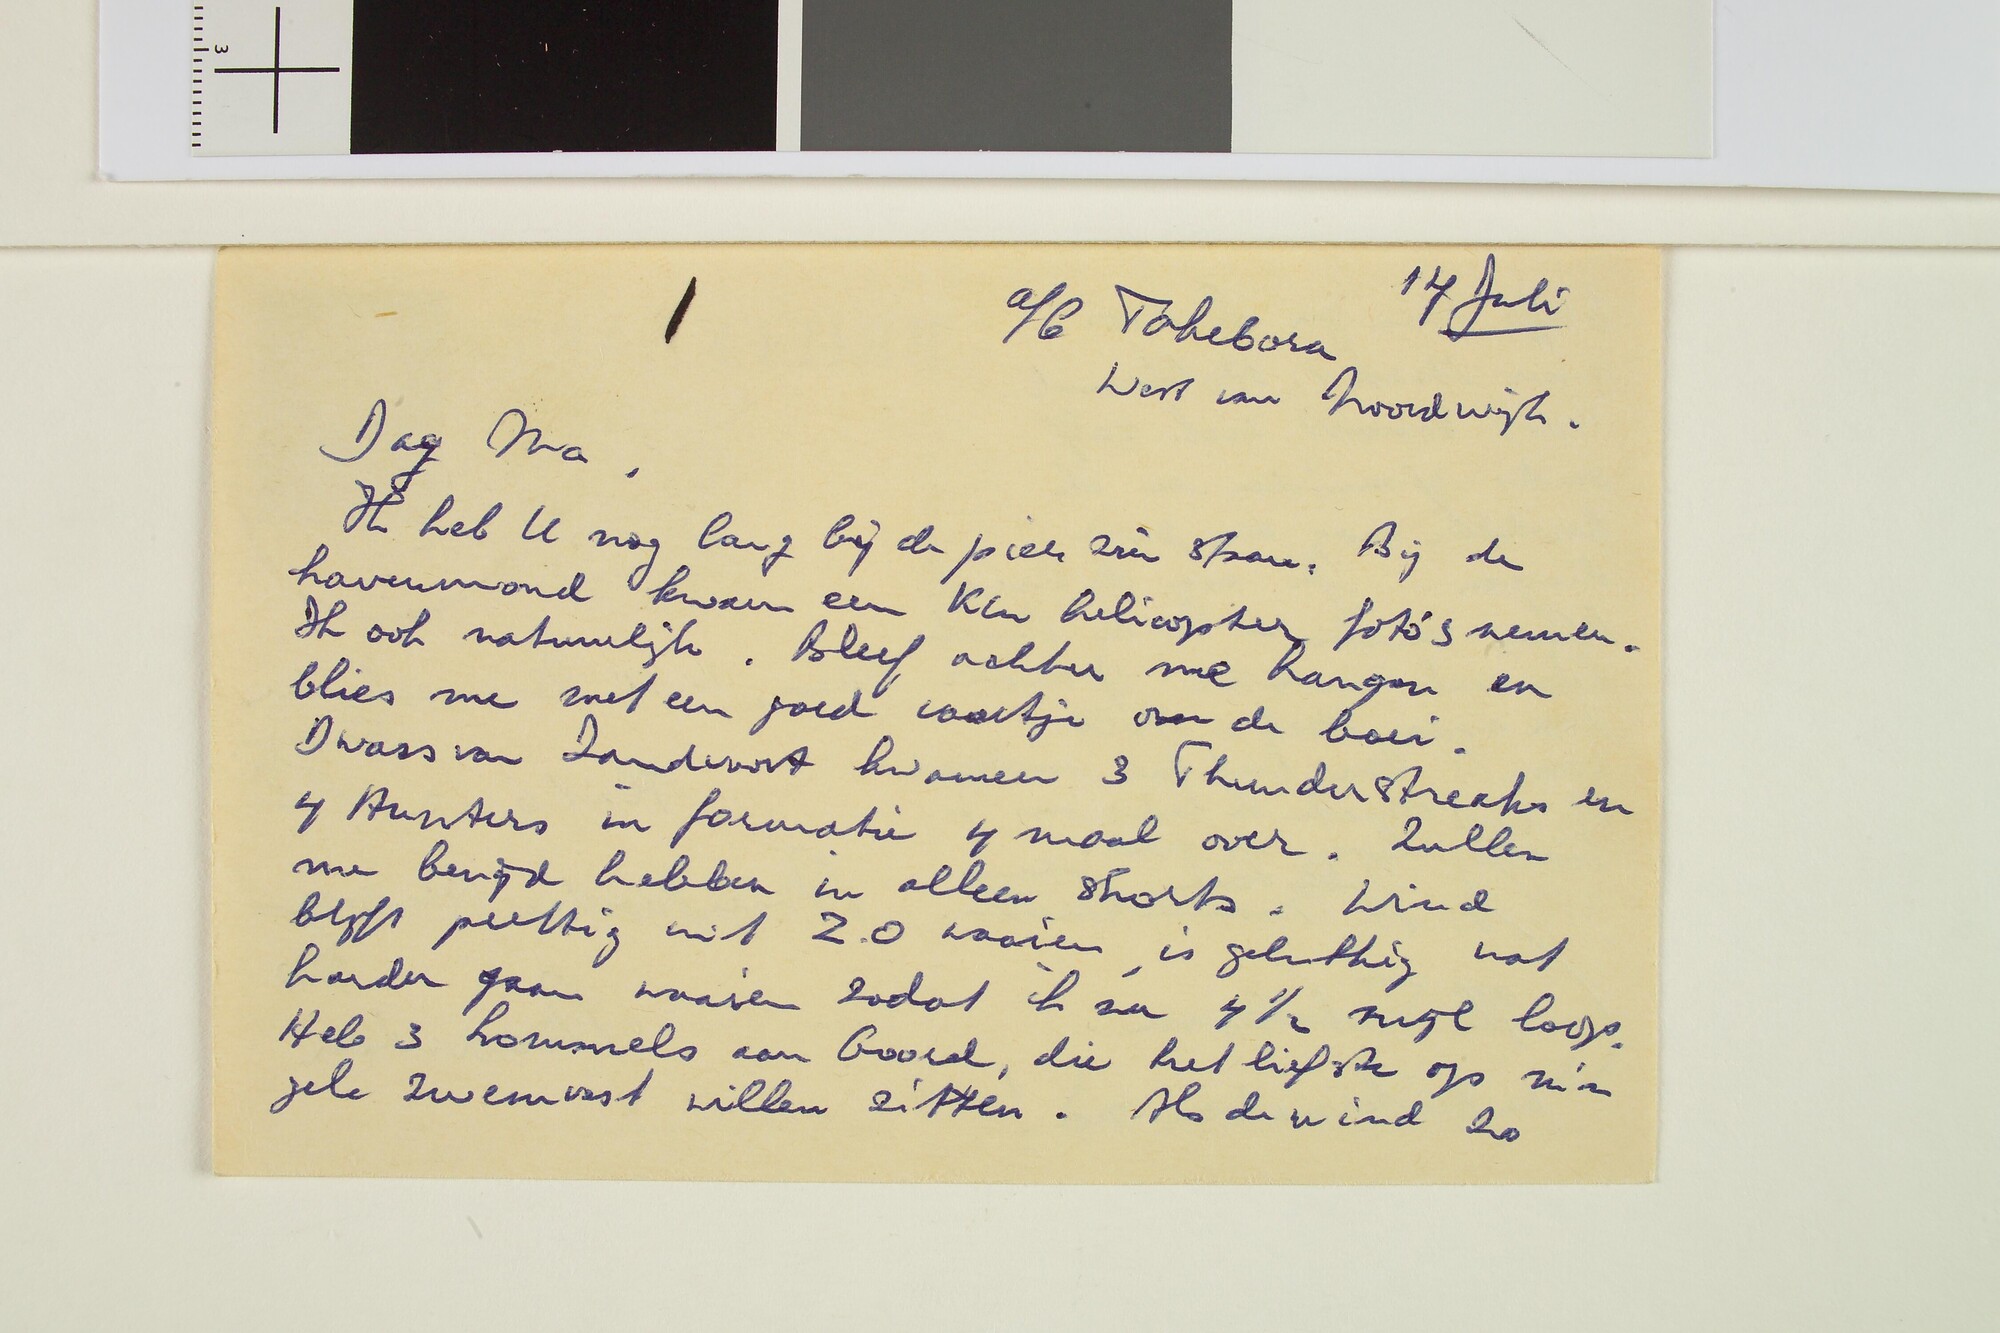 3
1
14 Juli
a/b Tahebora
West van Noordwijk.
Dag Ma,
Ik heb U nog lang bij de pier zien staan. Bij de
havenmond kwam een KLM helicopter foto's nemen.
Ik ook natuurlijk. Bleef achter me hangen en
blies me met een goed vaartje om de boei.
Dwars van Zandvoort kwamen 3 Thunderstreaks en
4 Hunters in formatie 4 maal over. Zullen
me benijd hebben in alleen shorts. Wind
blijft prettig uit Z.O waaien, is gelukkig wat
harder gaan waaien zodat ik nu 4 1/2 mijl loop.
Heb 3 hommels aan boord, die het liefste op m'n
gele zwemvest willen zitten. Als de wind zo